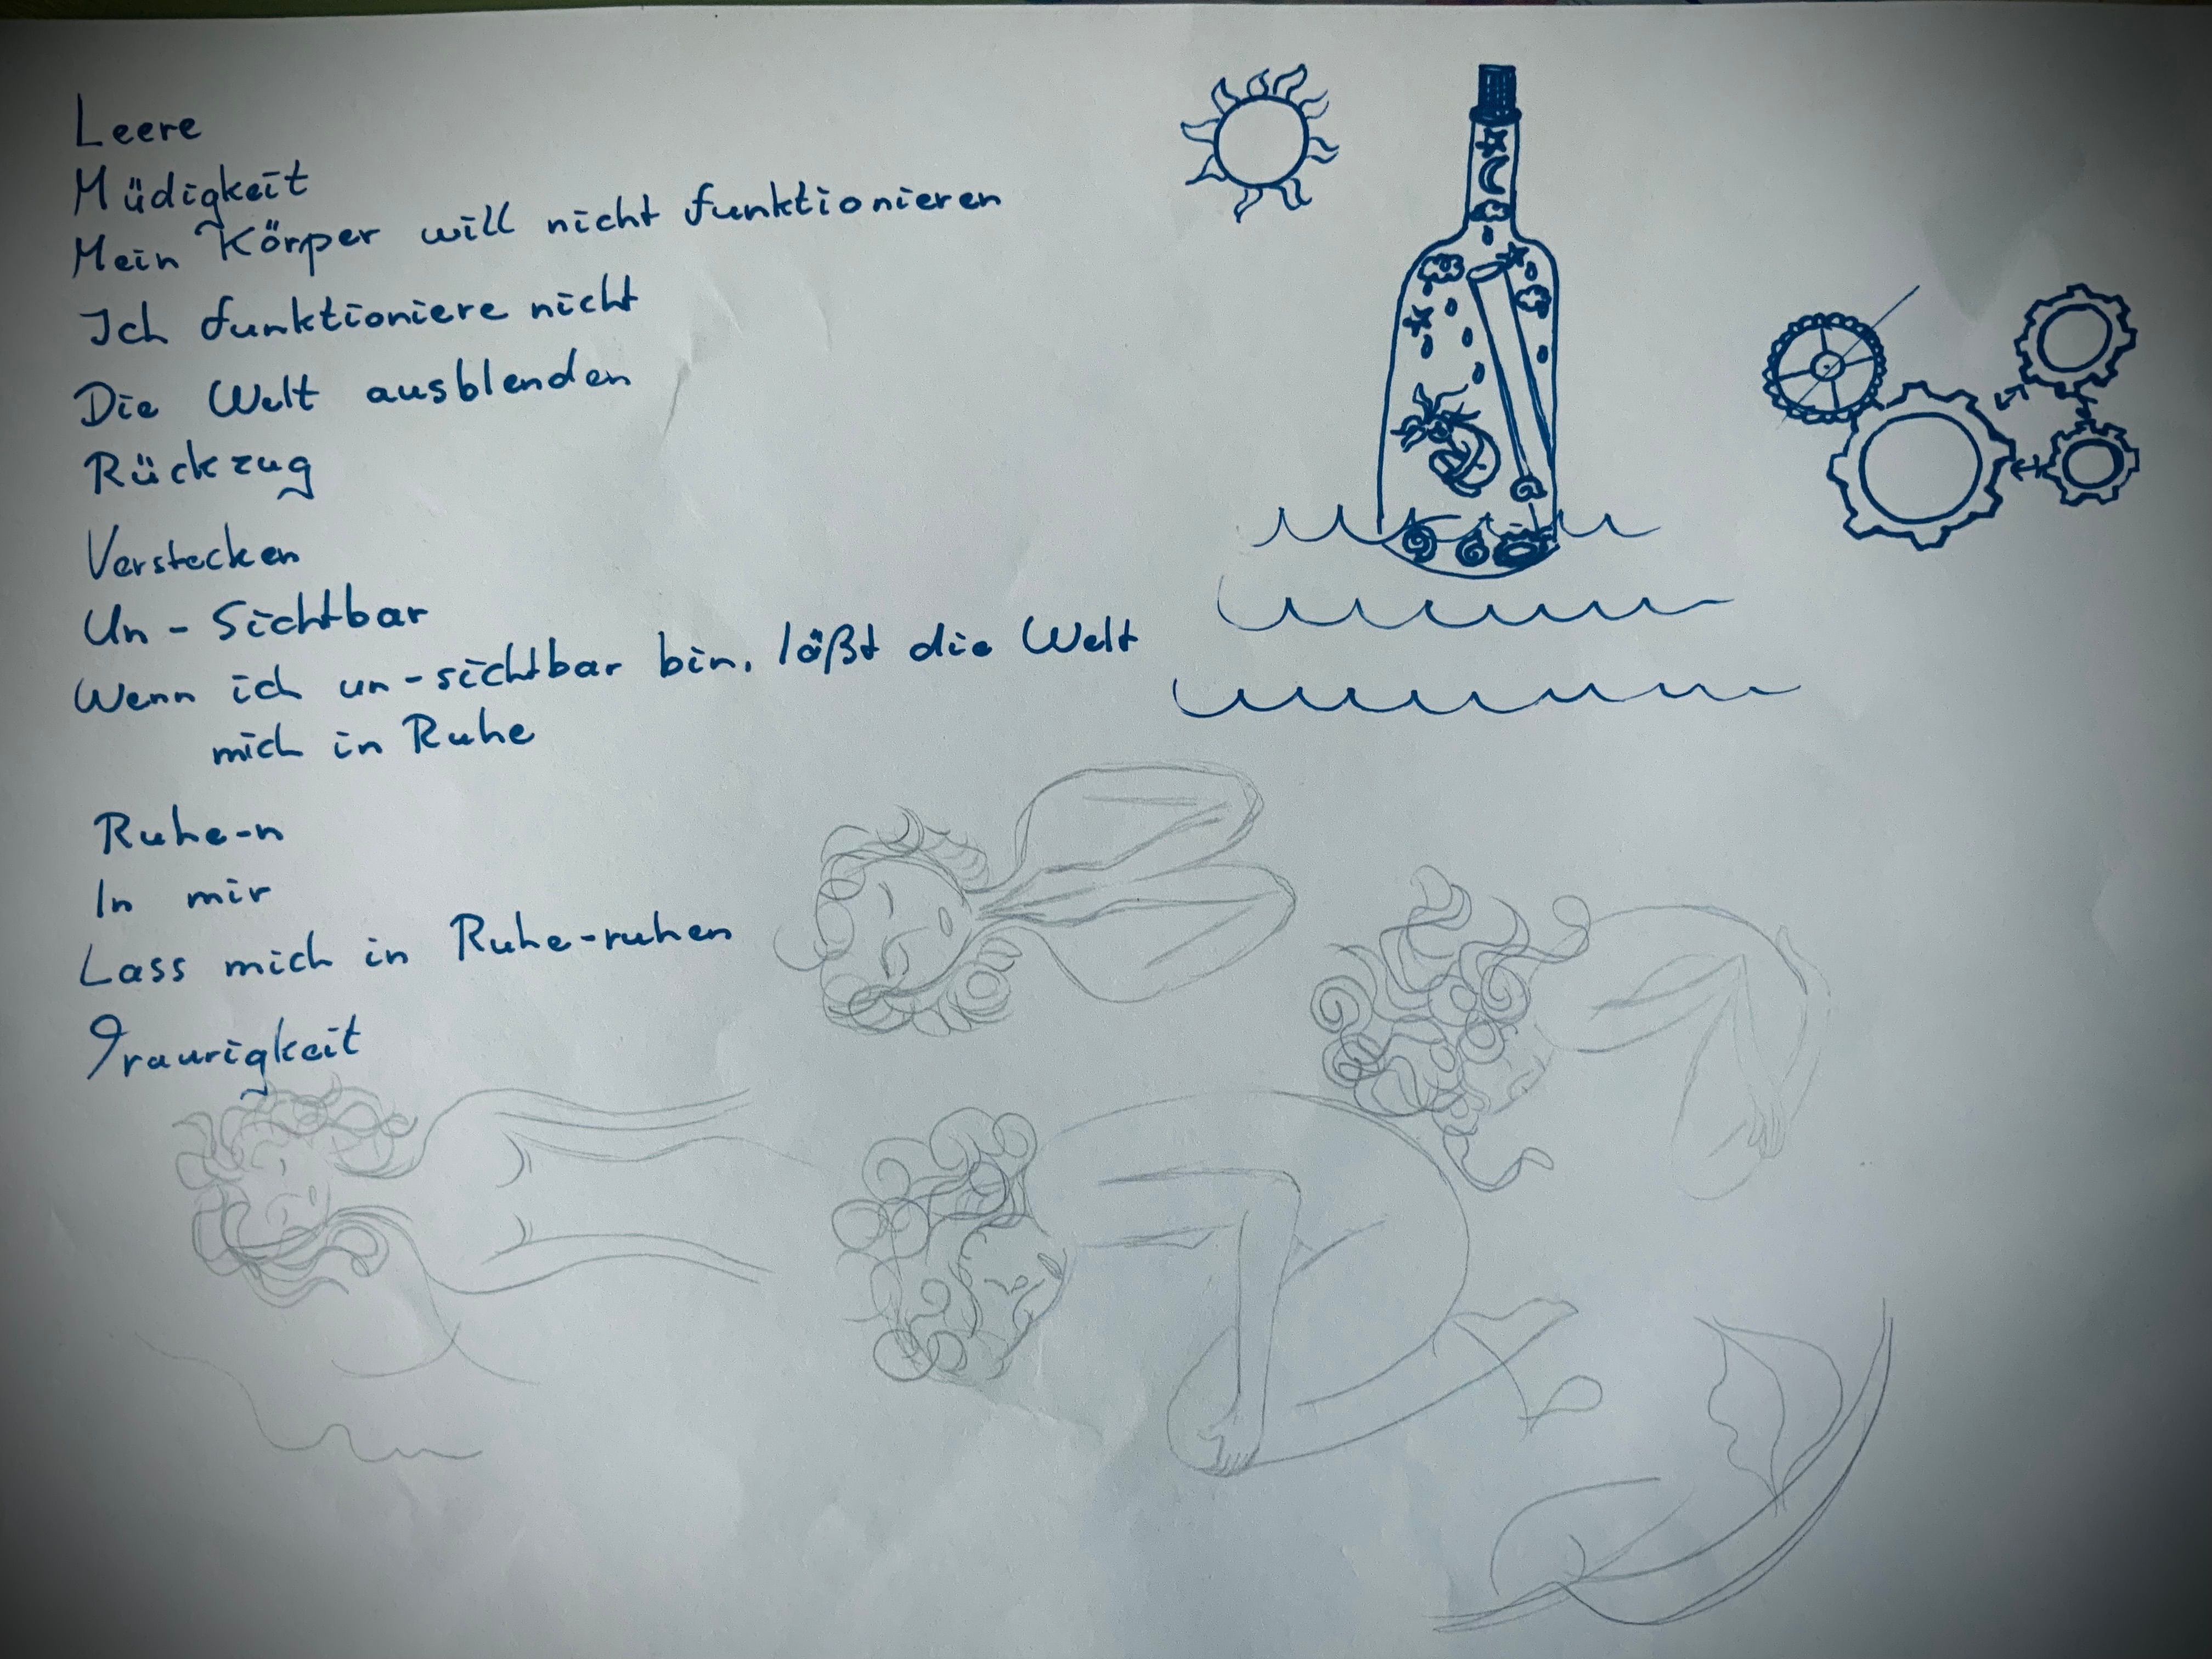 Leere
Müdigkeit
Mein Körper will nicht funktionieren
Ich funktioniere nicht
Die Welt ausblenden
Rückzug
Verstecken
Un-Sichtbar
Wenn ich un-sichtbar bin, läßt die Welt
mich in Ruhe
Ruhe-n
In mir
Lass mich in Ruhe-ruhen
Traurigkeit